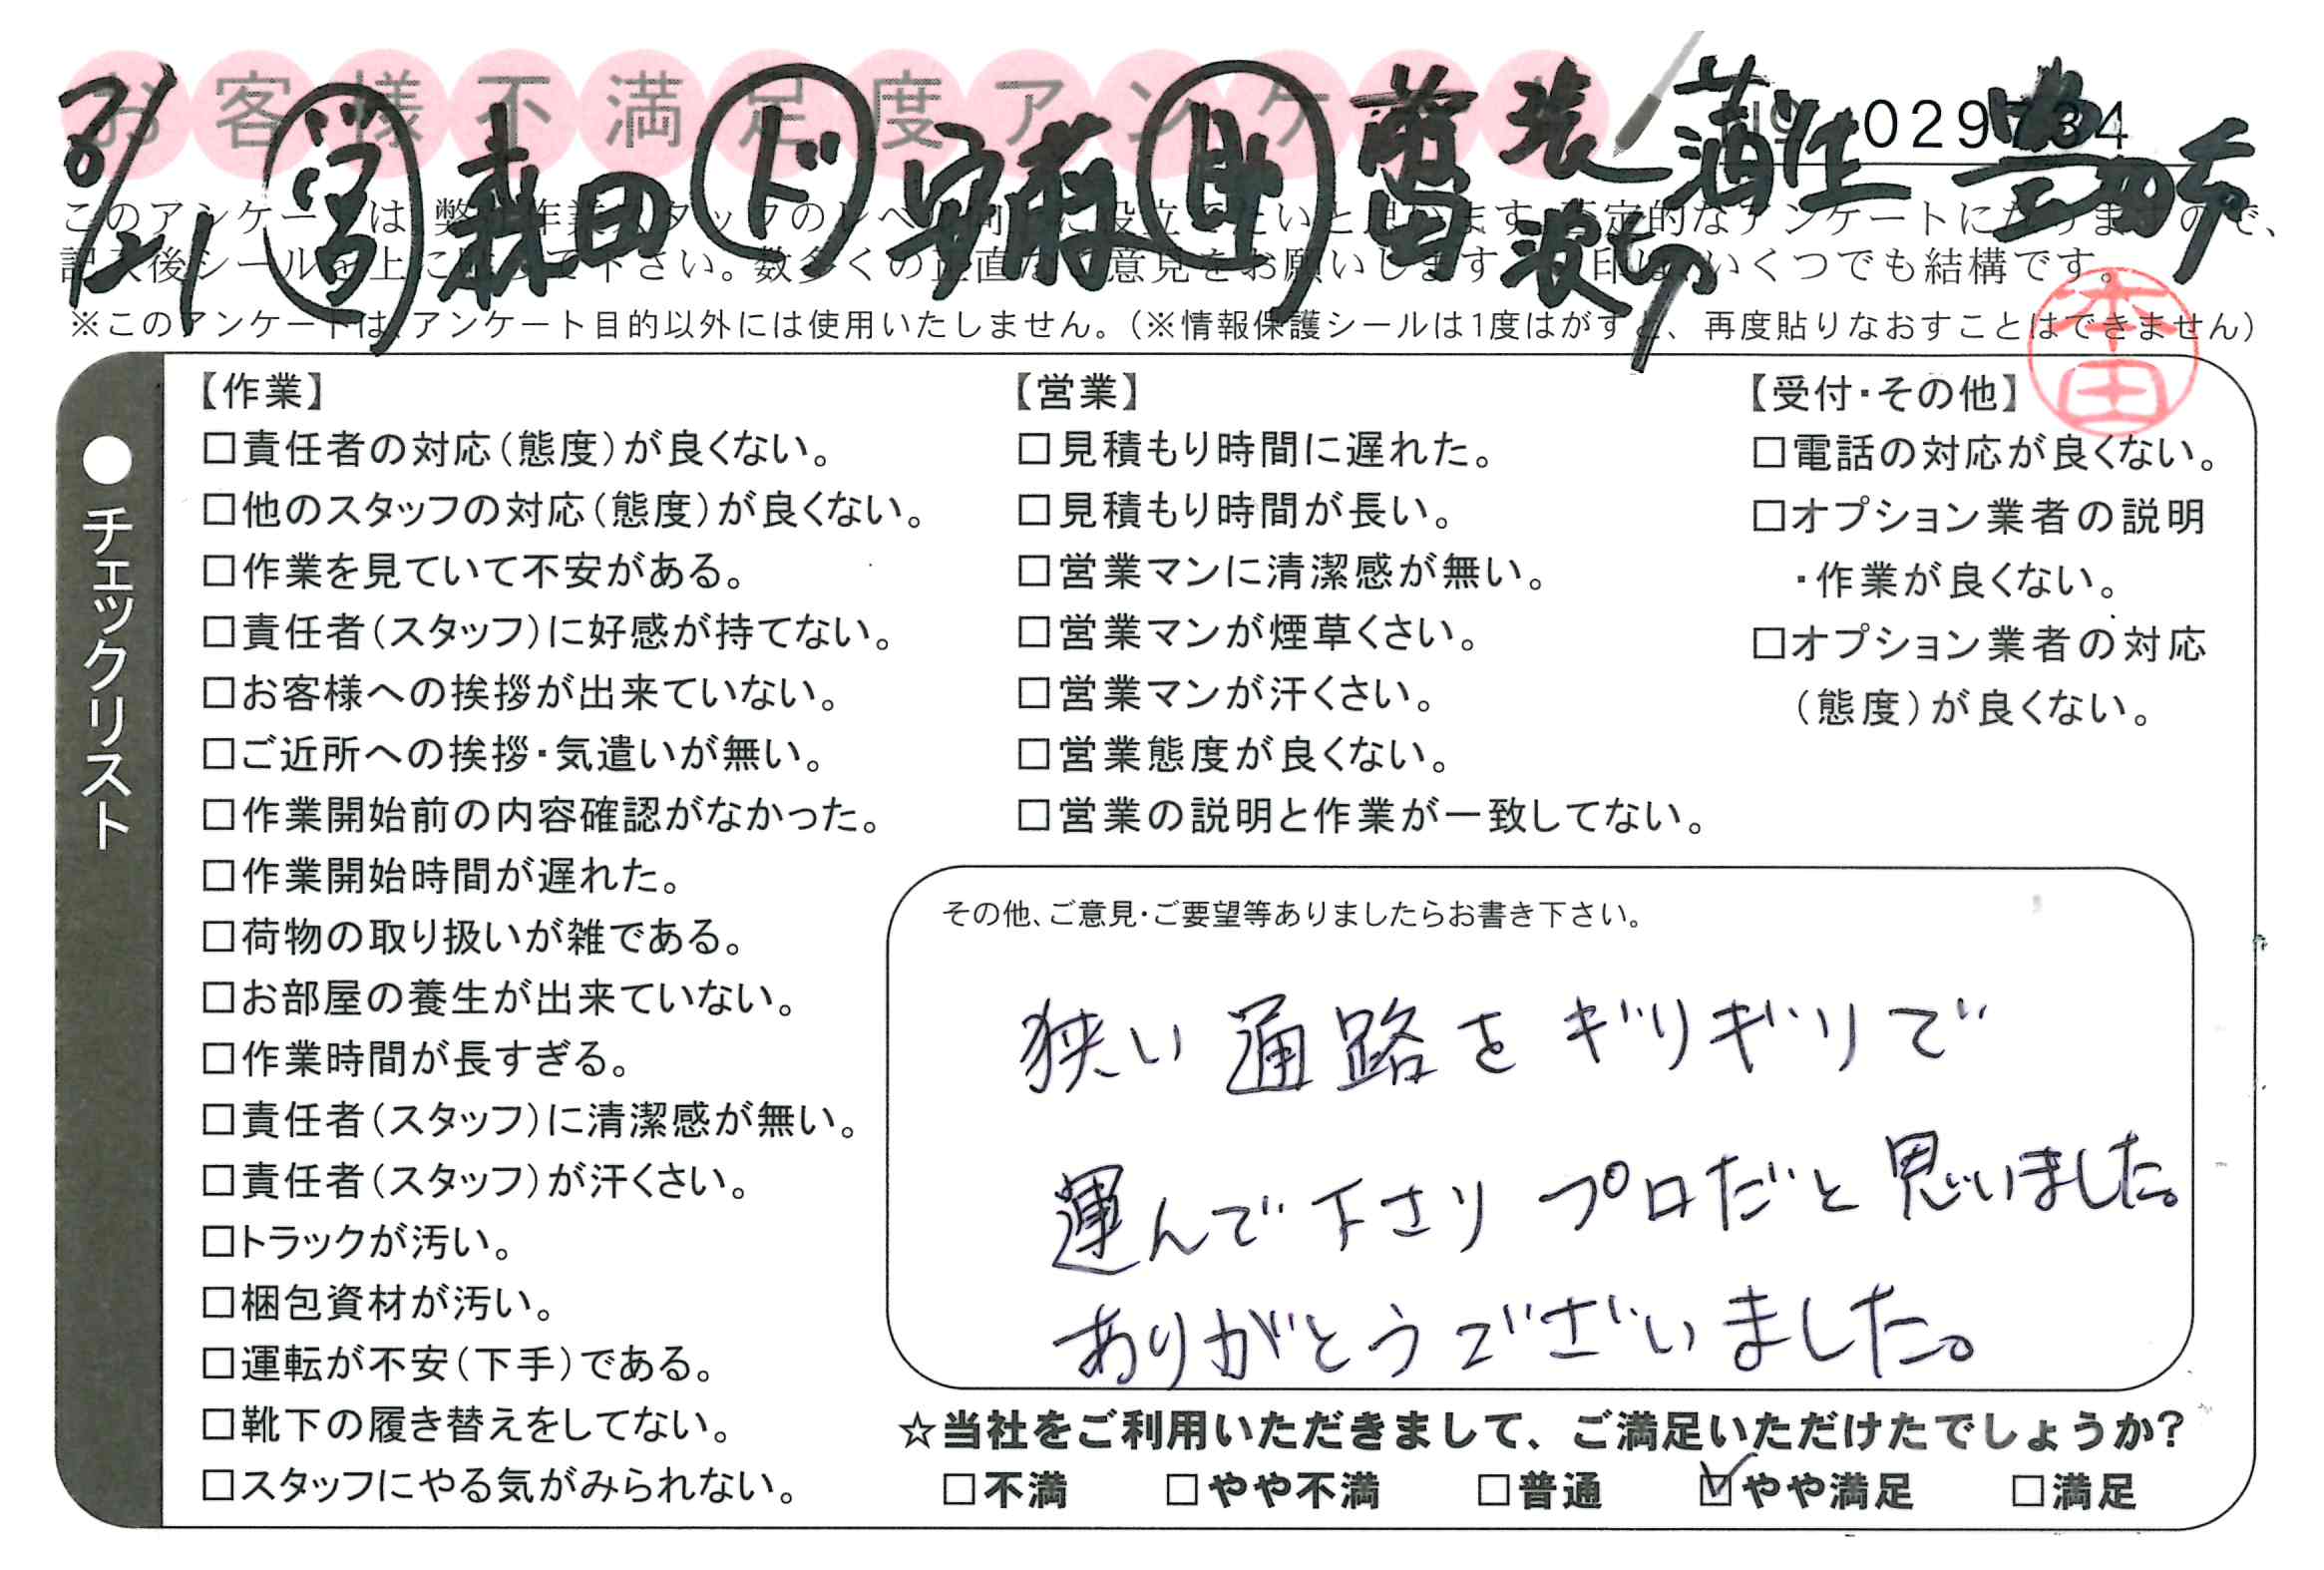 お客様不満足度アンケ
029734
8/21 営 森田 ド 安藤 助
※このアンケートは、アンケート目的以外には使用いたしません。(※情報保護シールは1度はがすと、再度貼りなおすことはできません)
本田
●チェックリスト
【作業】
□責任者の対応(態度)が良くない。
□他のスタッフの対応(態度)が良くない。
□作業を見ていて不安がある。
□責任者(スタッフ)に好感が持てない。
□お客様への挨拶が出来ていない。
□ご近所への挨拶・気遣いが無い。
□作業開始前の内容確認がなかった。
□作業開始時間が遅れた。
□荷物の取り扱いが雑である。
□お部屋の養生が出来ていない。
□作業時間が長すぎる。
□責任者(スタッフ)に清潔感が無い。
□責任者(スタッフ)が汗くさい。
□トラックが汚い。
□梱包資材が汚い。
□運転が不安(下手)である。
□靴下の履き替えをしてない。
□スタッフにやる気がみられない。
【営業】
□見積もり時間に遅れた。
□見積もり時間が長い。
□営業マンに清潔感が無い。
□営業マンが煙草くさい。
□営業マンが汗くさい。
□営業態度が良くない。
□営業の説明と作業が一致してない。
【受付・その他】
□電話の対応が良くない。
□オプション業者の説明
・作業が良くない。
□オプション業者の対応
(態度)が良くない。
その他、ご意見・ご要望等ありましたらお書き下さい。
狭い通路をギリギリで
運んで下さりプロだと思いました。
ありがとうございました。
☆当社をご利用いただきまして、ご満足いただけたでしょうか?
□不満 □やや不満 □普通 ☑やや満足 □満足